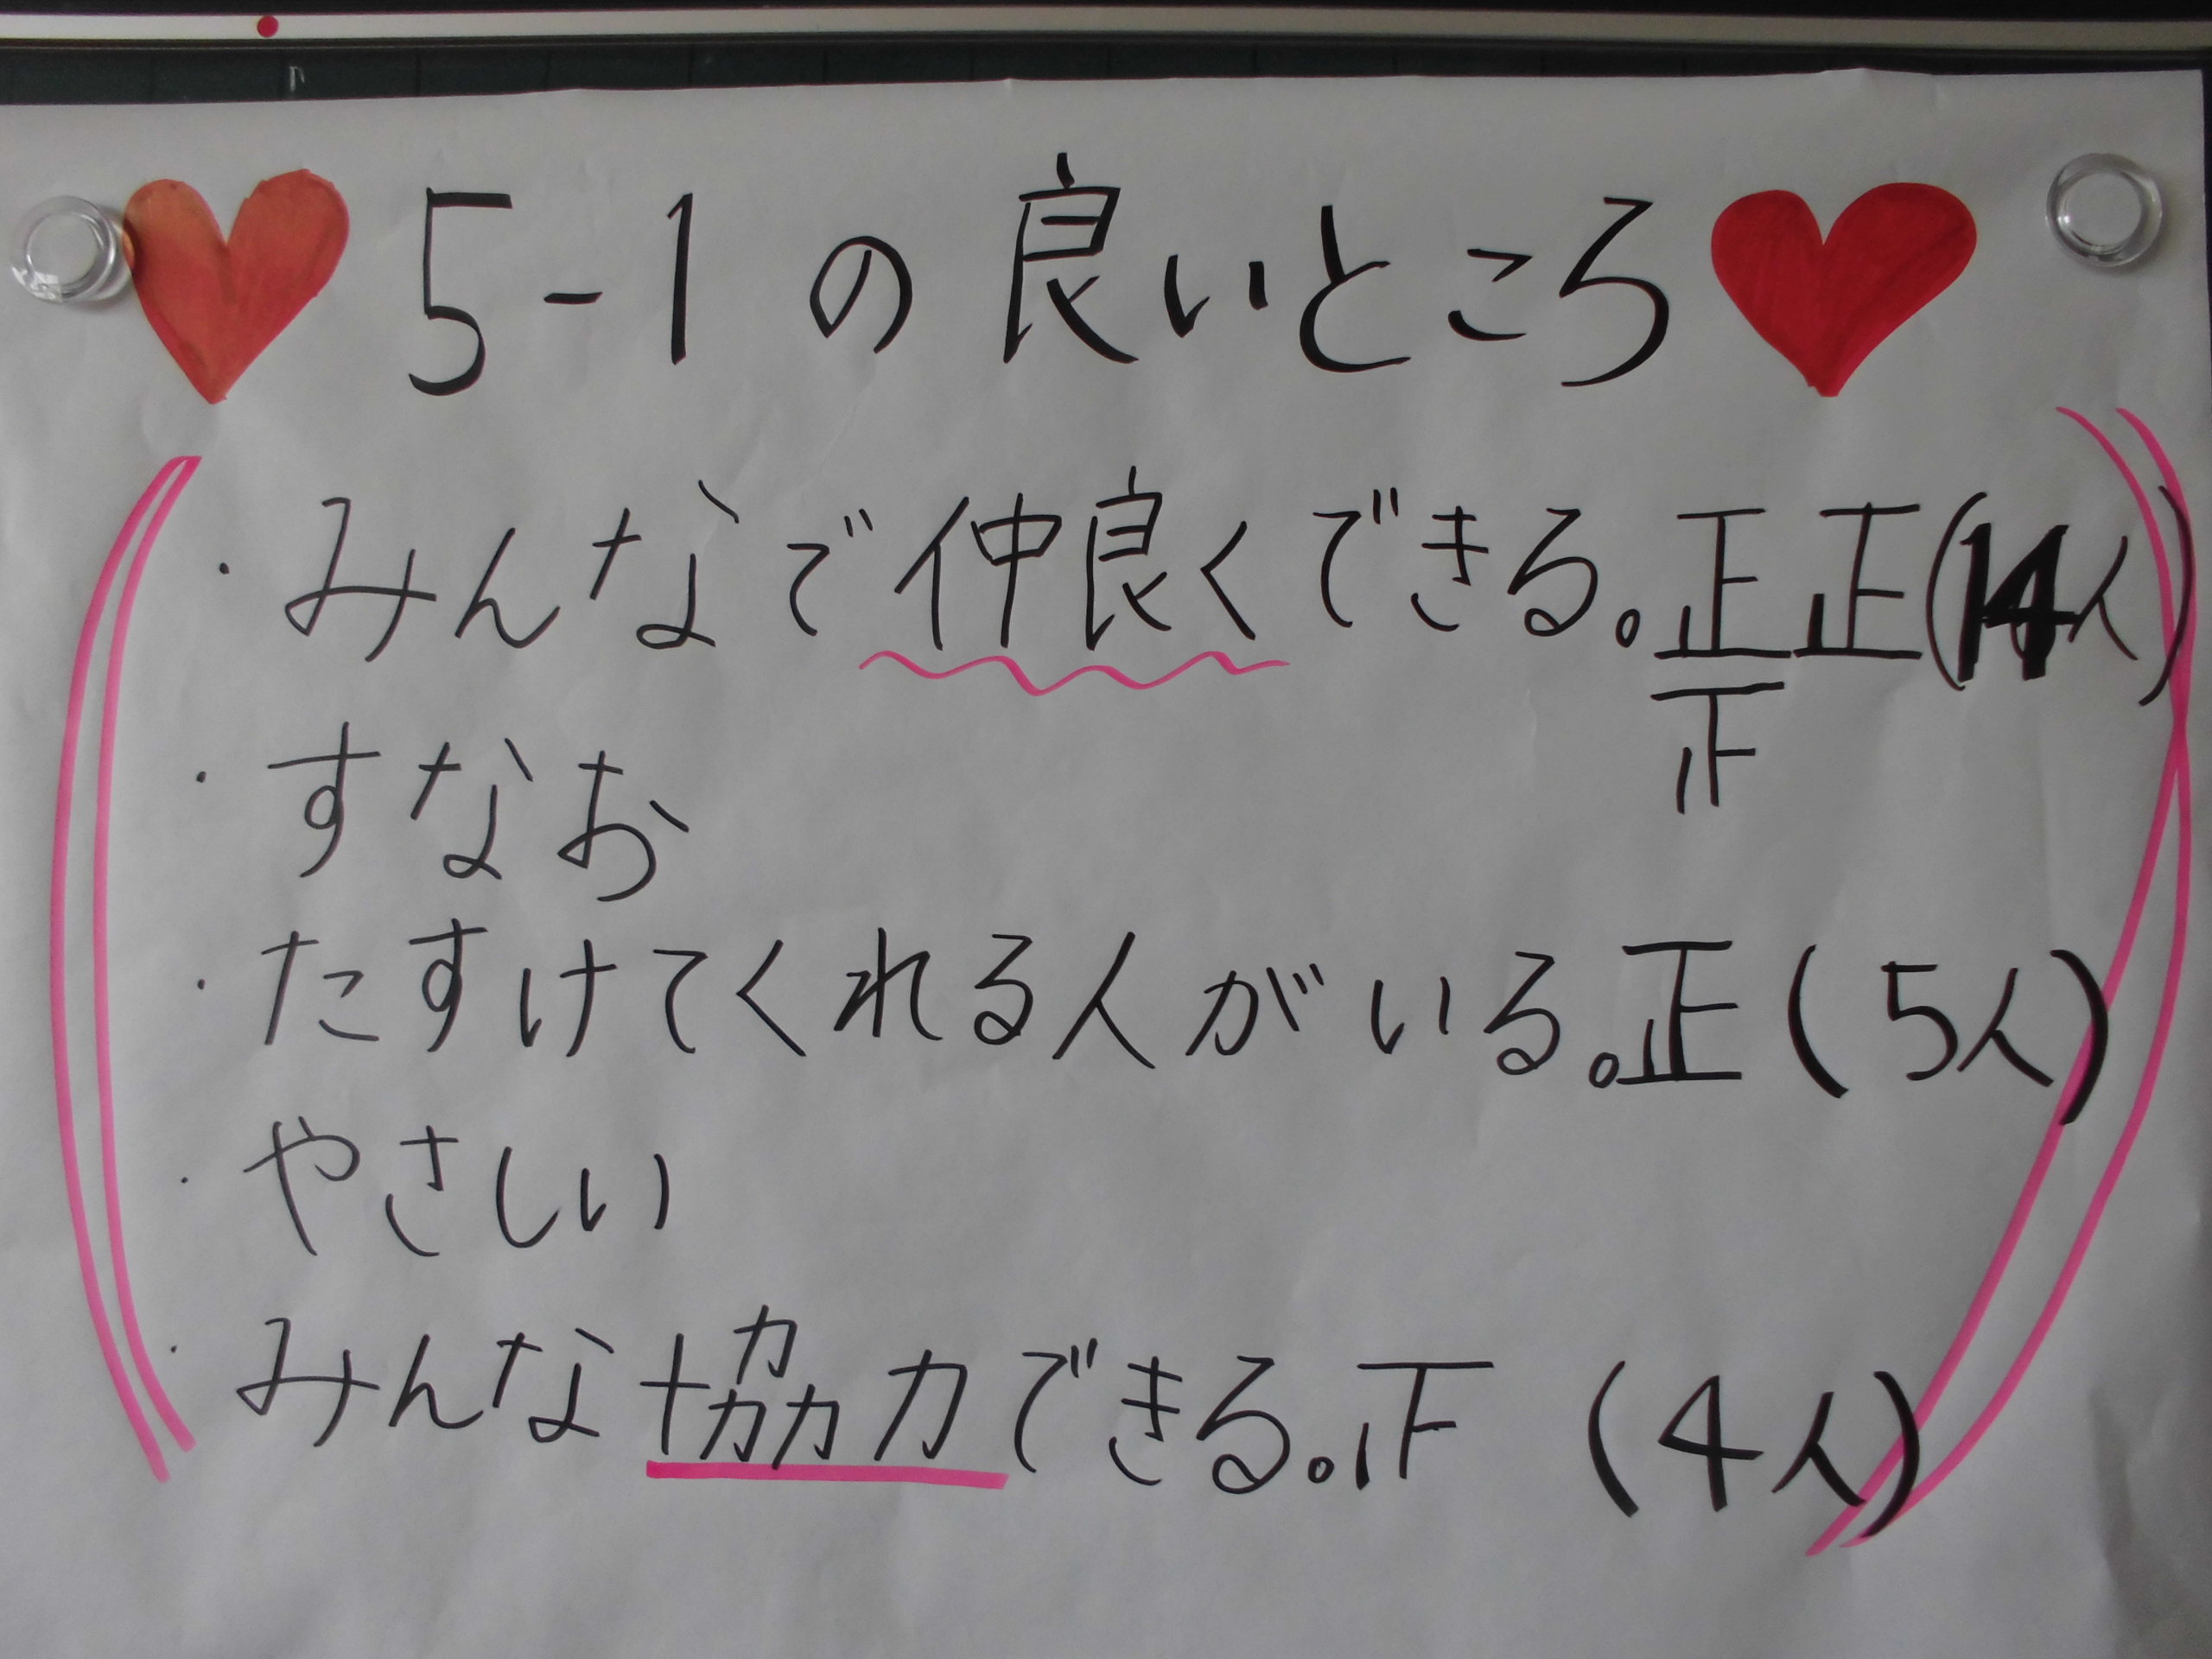 5-1の良いところ
・みんなで仲良くできる。正正(14人)
正
・すなお
・たすけてくれる人がいる。正(5人)
・やさしい
・みんな協力できる。正(4人)